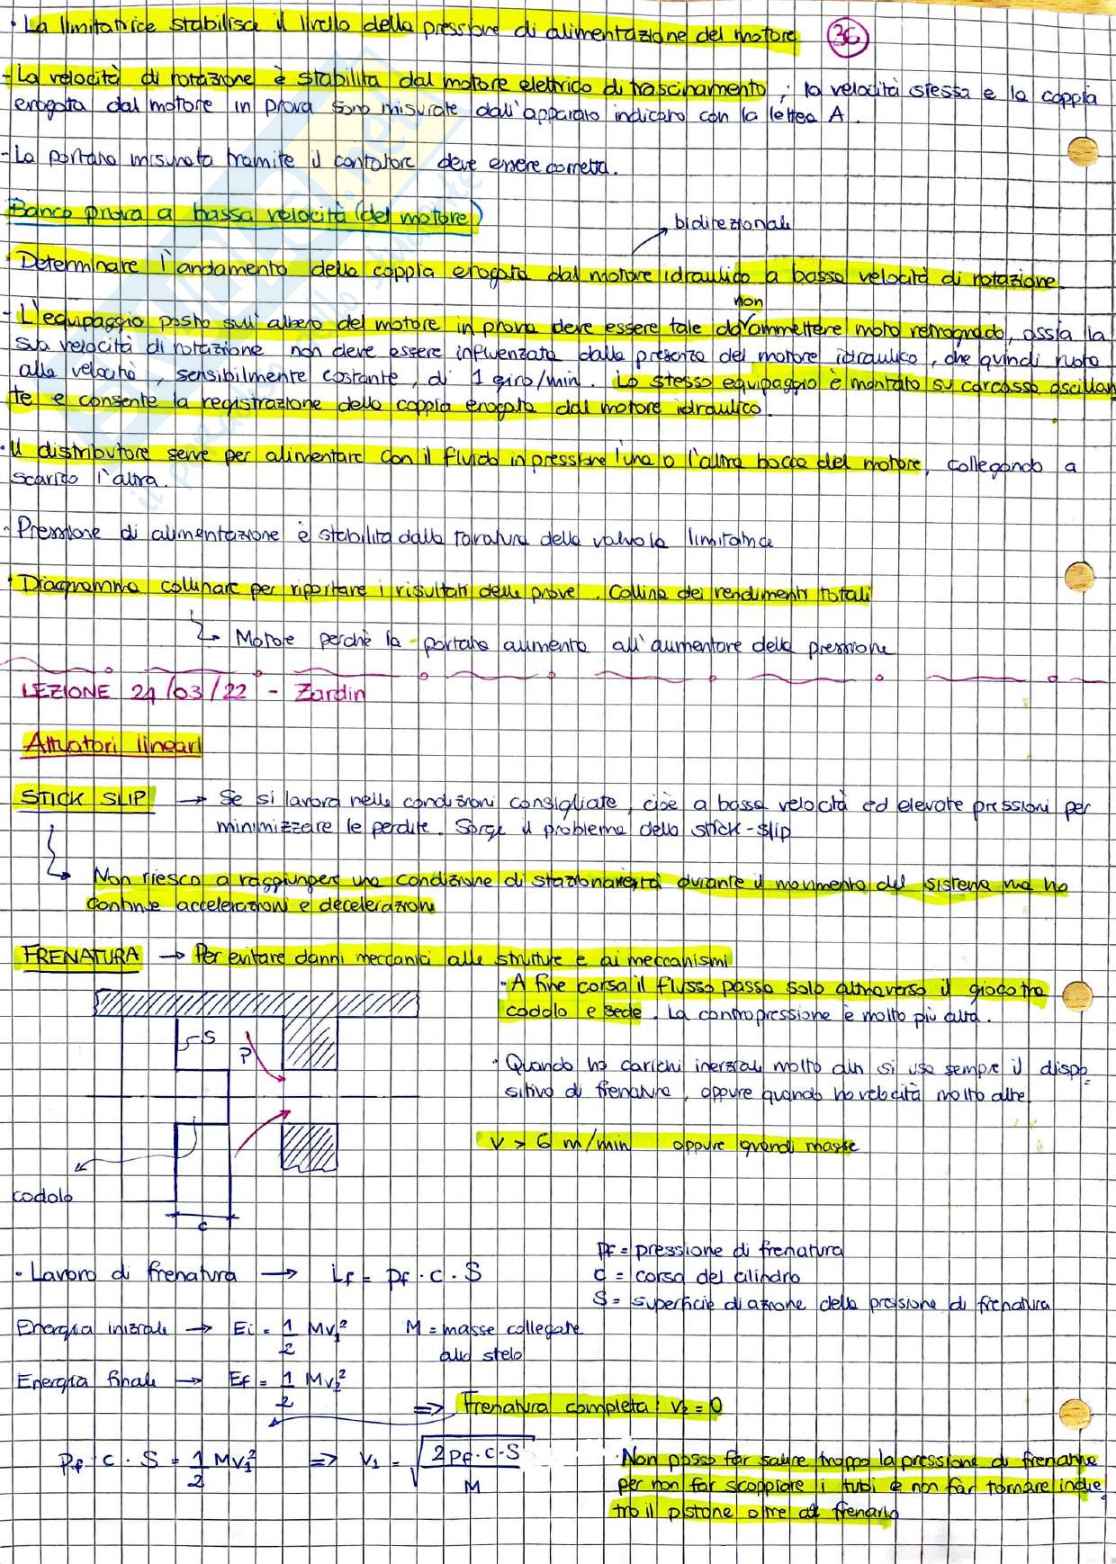 • La limitatrice stabilisce il livello della pressione di alimentazione del motore
36
- La velocità di rotazione è stabilita dal motore elettrico di trascinamento ; la velocità stessa e la coppia
erogata dal motore in prova sono misurate dall'apparato indicato con la lettera A.
- La portata misurata tramite il contatore deve essere corretta.
Banco prova a bassa velocità (del motore)
bidirezionale
• Determinare l'andamento della coppia erogata dal motore idraulico a bassa velocità di rotazione.
non
- L'equipaggio posto sull'albero del motore in prova deve essere tale da ammettere moto retrogrado, ossia la
sua velocità di rotazione non deve essere influenzata dalla presenza del motore idraulico, che quindi ruota
alla velocità, sensibilmente costante, di 1 giro/min. Lo stesso equipaggio è montato su carcassa oscillan
te e consente la registrazione della coppia erogata dal motore idraulico.
• Il distributore serve per alimentare con il fluido in pressione l'una o l'altra bocca del motore, collegando a
scarico l'altra.
- Pressione di alimentazione è stabilita dalla taratura della valvola limitatrice
• Diagramma collinare per riportare i risultati delle prove. Collina dei rendimenti totali
Motore perchè la portata aumenta all'aumentare della pressione
LEZIONE 24/03/22 - Zardin
Attuatori lineari
STICK SLIP → Se si lavora nelle condizioni consigliate, cioè a bassa velocità ed elevate pressioni per
minimizzare le perdite. Sorge il problema dello stick-slip
Non riesco a raggiungere una condizione di stazionarietà durante il movimento del sistema ma ho
continue accelerazioni e decelerazioni
FRENATURA → Per evitare danni meccanici alle strutture e ai meccanismi
• A fine corsa il flusso passa solo attraverso il gioco tra
codolo e sede. La contropressione è molto più alta.
S
P
• Quando ho carichi inerziali molto alti si usa sempre il dispo
sitivo di frenatura, oppure quando ho velocità molto alte.
v > 6 m/min oppure grandi masse
codolo
c
pf = pressione di frenatura
• Lavoro di frenatura → Lf = pf · c · S
c = corsa del cilindro
S = superficie di azione della pressione di frenatura
Energia iniziale → Ei = 1/2 Mv₁² M = masse collegate
allo stelo
Energia finale → Ef = 1/2 Mv₂²
⇒ Frenatura completa: v₂ = 0
Pf · c · S = 1/2 Mv₁² ⇒ V₁ = √(2pf·c·S / M)
• Non posso far salire troppo la pressione di frenatura
per non far scoppiare i tubi e non far tornare indie
tro il pistone oltre a frenarlo